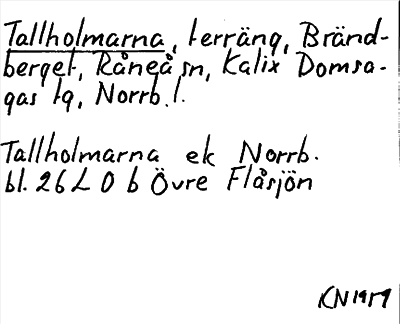 Tallholmarna, terräng, Bränd-
berget, Råneå sn, Kalix Domsa-
gas tg, Norrb.l.
Tallholmarna ek Norrb.
bl. 26 L 0 b Övre Flåsjön